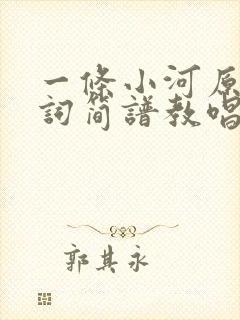 一條小河原
詞简譜教唱
郭其永